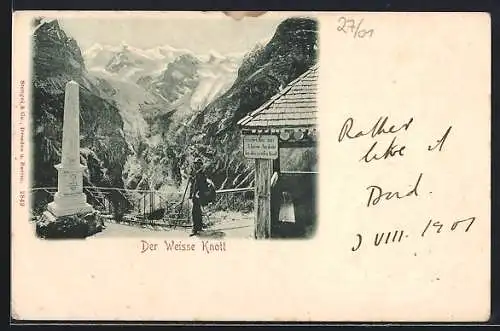 27/01
Stengel & Co., Dresden u. Berlin. 1849
Der Weisse Knott
Rather
like it
Dad.
VIII. 1901